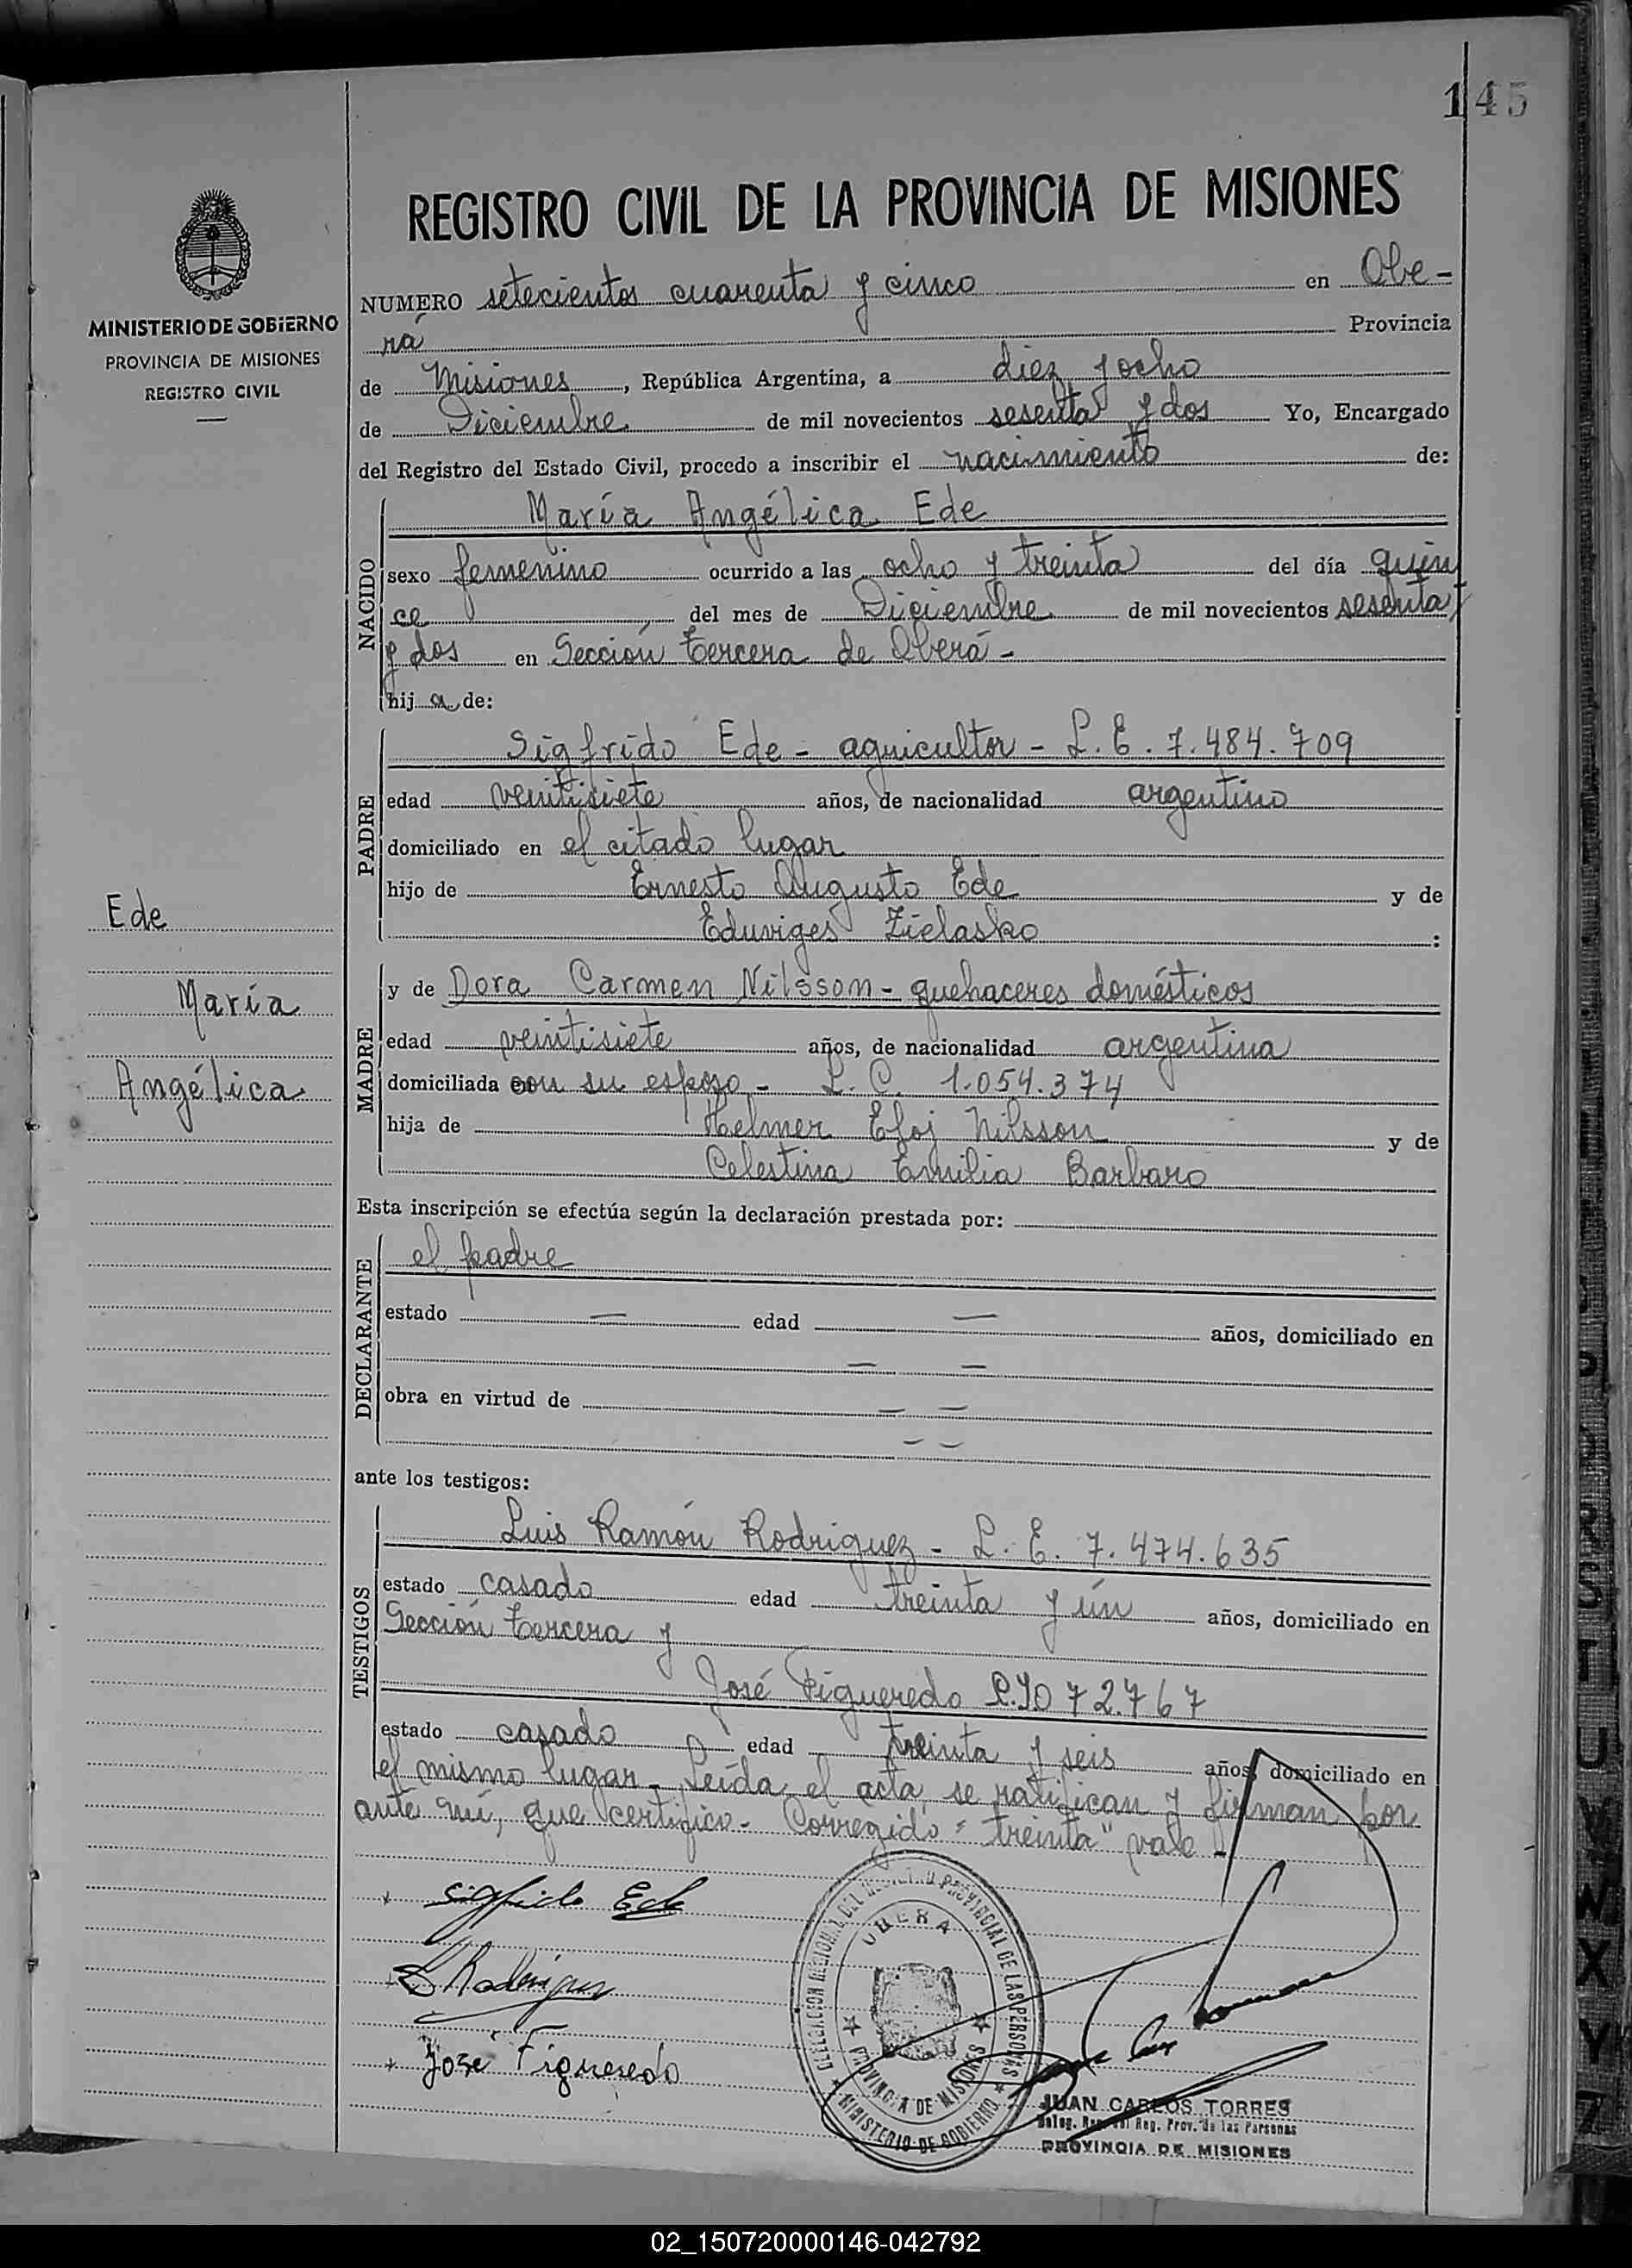 145
REGISTRO CIVIL DE LA PROVINCIA DE MISIONES
MINISTERIO DE GOBIERNO
PROVINCIA DE MISIONES
REGISTRO CIVIL
NUMERO setecientos cuarenta y cinco en Obe-
rá Provincia
de Misiones, República Argentina, a diez y ocho
de Diciembre de mil novecientos sesenta y dos Yo, Encargado
del Registro del Estado Civil, procedo a inscribir el nacimiento de:
NACIDO
María Angélica Ede
sexo femenino ocurrido a las ocho y treinta del día quin
ce, del mes de Diciembre de mil novecientos sesenta
y dos en Sección tercera de Oberá-
hija de:
PADRE
Sigfrido Ede - agricultor - L.E. 7.484.709
edad veintisiete años, de nacionalidad argentino
domiciliado en el citado lugar
hijo de Ernesto Augusto Ede y de
Eduviges Zielasko :
Ede
María
Angélica
MADRE
y de Dora Carmen Nilsson - quehaceres domésticos
edad veintisiete años, de nacionalidad argentina
domiciliada con su esposo - L.C. 1.054.374
hija de Helmer Eloj Nilsson y de
Celestina Emilia Barbaro
Esta inscripción se efectúa según la declaración prestada por:
DECLARANTE
el padre
estado — edad — años, domiciliado en
— —
obra en virtud de — —
— —
ante los testigos:
TESTIGOS
Luis Ramón Rodriguez - L.E. 7.474.635
estado casado edad treinta y ún años, domiciliado en
Sección tercera y
José Figueredo 072.767
estado casado edad treinta y seis años, domiciliado en
el mismo lugar - Leída el acta, se ratifican y firman por
ante mí, que certifico - Corregido "treinta" vale -
Sigfrido Ede
L Rodriguez
José Figueredo
DELEGACION REGIONAL DEL REGISTRO PROVINCIAL DE LAS PERSONAS
OBERA
PROVINCIA DE MISIONES
MINISTERIO DE GOBIERNO
JUAN CARLOS TORRES
Deleg. Reg. del Reg. Prov. de las Personas
PROVINCIA DE MISIONES
U
V
W
X
Y
Z
02_150720000146-042792